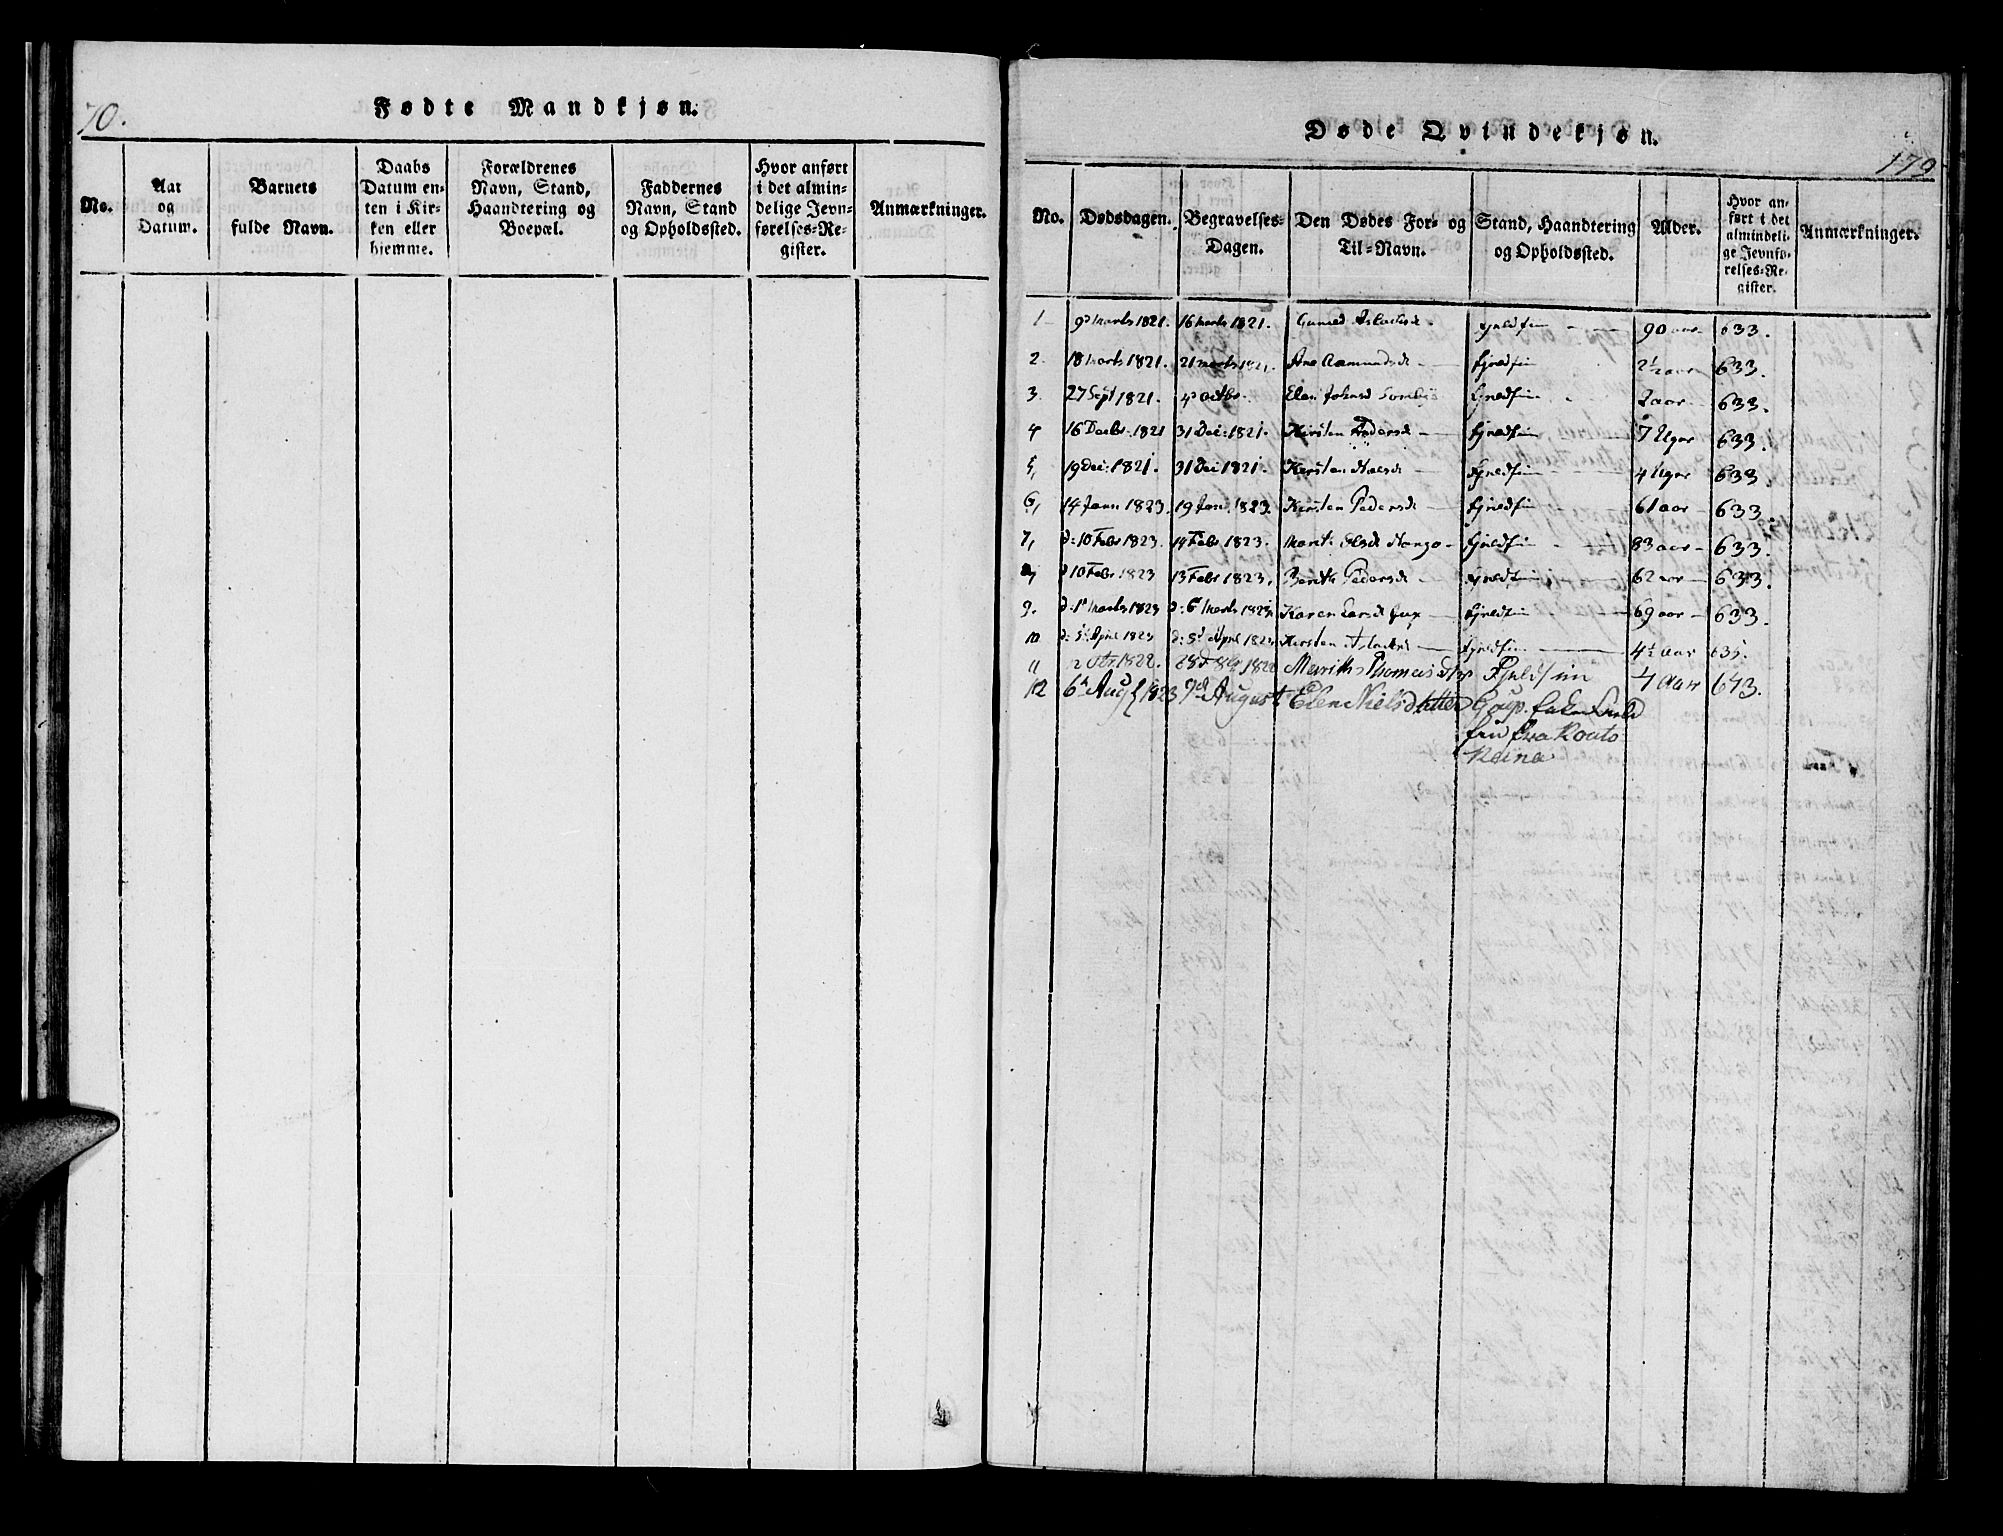 70.
Fødte Mandkjøn.
No.
Aar
og
Datum.
Barnets
fulde Navn.
Daabs
Datum en-
ten i Kir-
ken eller
hjemme.
Forældrenes
Navn, Stand,
Haandtering og
Boepæl.
Faddernes
Navn, Stand
og Opholdssted.
Hvor anført
i det almin-
delige Jevn-
førelses-Re-
gister.
Anmærkninger.
Døde Qvindekjøn.
179
No.
Dødsdagen.
Begravelses-
Dagen.
Den Dødes For- og
Til-Navn.
Stand, Haandtering
og Opholdssted.
Alder.
Hvor an-
ført i det
almindeli-
ge Jevnfø-
relses-Re-
gister.
Anmærkninger.
1 9d Marts 1821. 16 Marts 1821. Aslachsd. Fjeldfin 90 aar 633.
2. 18 Marts 1821. 21 Marts 1821. Ane Aamundsd. Fjeldfin 2½ aar 633.
3. 27 Sept 1821. 4d Octbr. Elen Johnsd Fjeldfin 2 aar 633.
4 16 Decbr. 1821 31 Dec: 1821. Kirsten Fjeldfin 7 Uger 633.
5, 19 Dec: 1821. 31 Dec 1821. Kirsten Fjeldfin 4 Uger 633.
6, 14 Janu 1823. 19 Jan. 1823. Kirsten Pedersd Fjeldfin 61 aar 633.
7, d: 10 Febr 1823. 14 Febr 1823. Marit Fjeldfin 83 aar 633.
8, d 10 Febr. 1823 13 Febr 1823. Berith Pedersd Fjeldfin 62 aar 633.
9. d: 1d Marts 1823 d: 6d Marts 1823 Karen Larsd Fjeldfin 69 aar 633.
10 d: 5d April 1823 d: 8d April 1823 Kirsten Aslachsd Fjeldfin 4½ aar 633.
11 1822. 1822 Marith Thomasd Fjeldfin
12 6d Aug 1823 9d August Elen Nielsdatter Fjeld 4 Aar 643.
fin fra Kouto
Keino